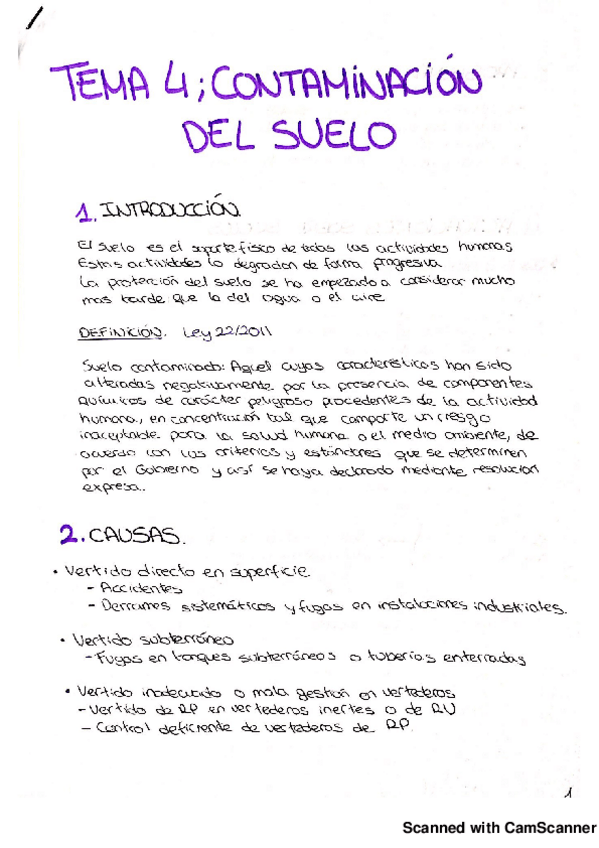 TEMA 4; CONTAMINACIÓN
DEL SUELO
1. INTRODUCCIÓN.
El suelo es el soporte fisico de todas las actividades humanas
Estas actividades lo degradan de forma progresiva.
La protección del suelo se ha empezado a considerar mucho
mas tarde que la del agua o el aire
DEFINICIÓN. Ley 22/2011
Suelo contaminado: Aquel cuyas características han sido
alteradas negativamente por la presencia de componentes
químicos de carácter peligroso procedentes de la actividad
humana, en concentración tal que comporte un riesgo
inaceptable para la salud humana o el medio ambiente, de
acuerdo con los criterios y estándares que se determinen
por el Gobierno y así se haya declarado mediante resolución
expresa..
2. CAUSAS.
• Vertido directo en superficie.
- Accidentes
- Derrames sistemáticos y fugas en instalaciones industriales.
• Vertido subterráneo
- Fugas en tanques subterráneos o tuberías enterradas
• Vertido inadecuado o mala gestión en vertederos
- Vertido de RP en vertederos inertes o de RU
- Control deficiente de vertederos de RP.
1
Scanned with CamScanner